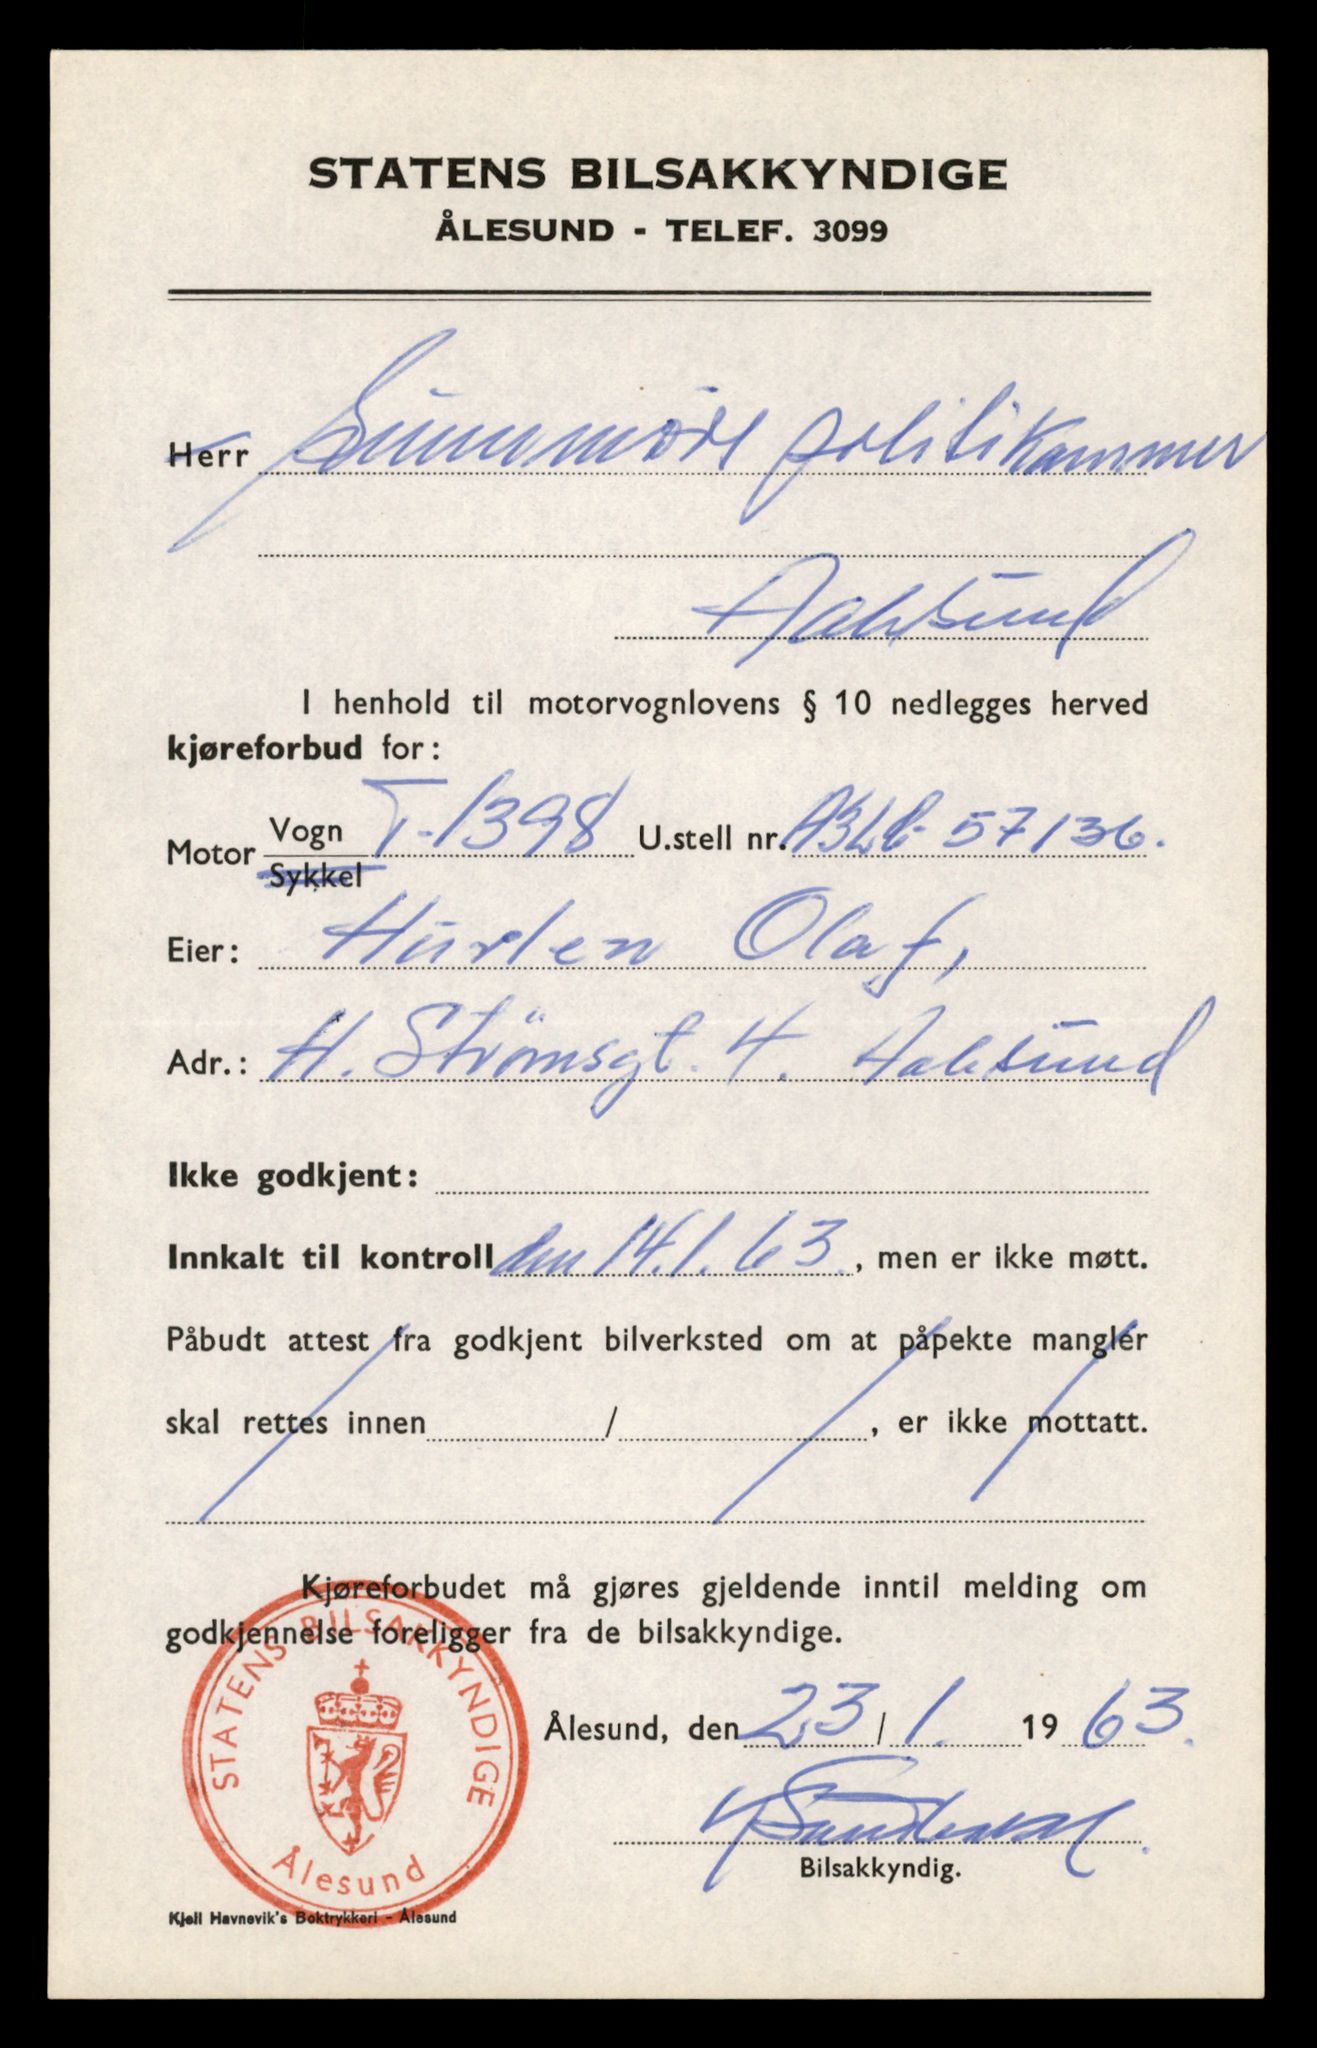 STATENS BILSAKKYNDIGE
ÅLESUND - TELEF. 3099
Herr Sunnmöre politikammer
Aalesund
I henhold til motorvognlovens § 10 nedlegges herved
kjøreforbud for:
Motor Vogn T-1398 U.stell nr. 57136.
Sykkel
Eier: Hurlen Olaf,
Adr.: H. Strömsgt. 4. Aalesund
Ikke godkjent:
Innkalt til kontroll den 14.1.63., men er ikke møtt.
Påbudt attest fra godkjent bilverksted om at påpekte mangler
skal rettes innen / , er ikke mottatt.
Kjøreforbudet må gjøres gjeldende inntil melding om
godkjennelse foreligger fra de bilsakkyndige.
STATENS BILSAKKYNDIGE
Ålesund
Ålesund, den 23/1. 1963.
Bilsakkyndig.
Kjell Havnevik's Boktrykkeri - Ålesund